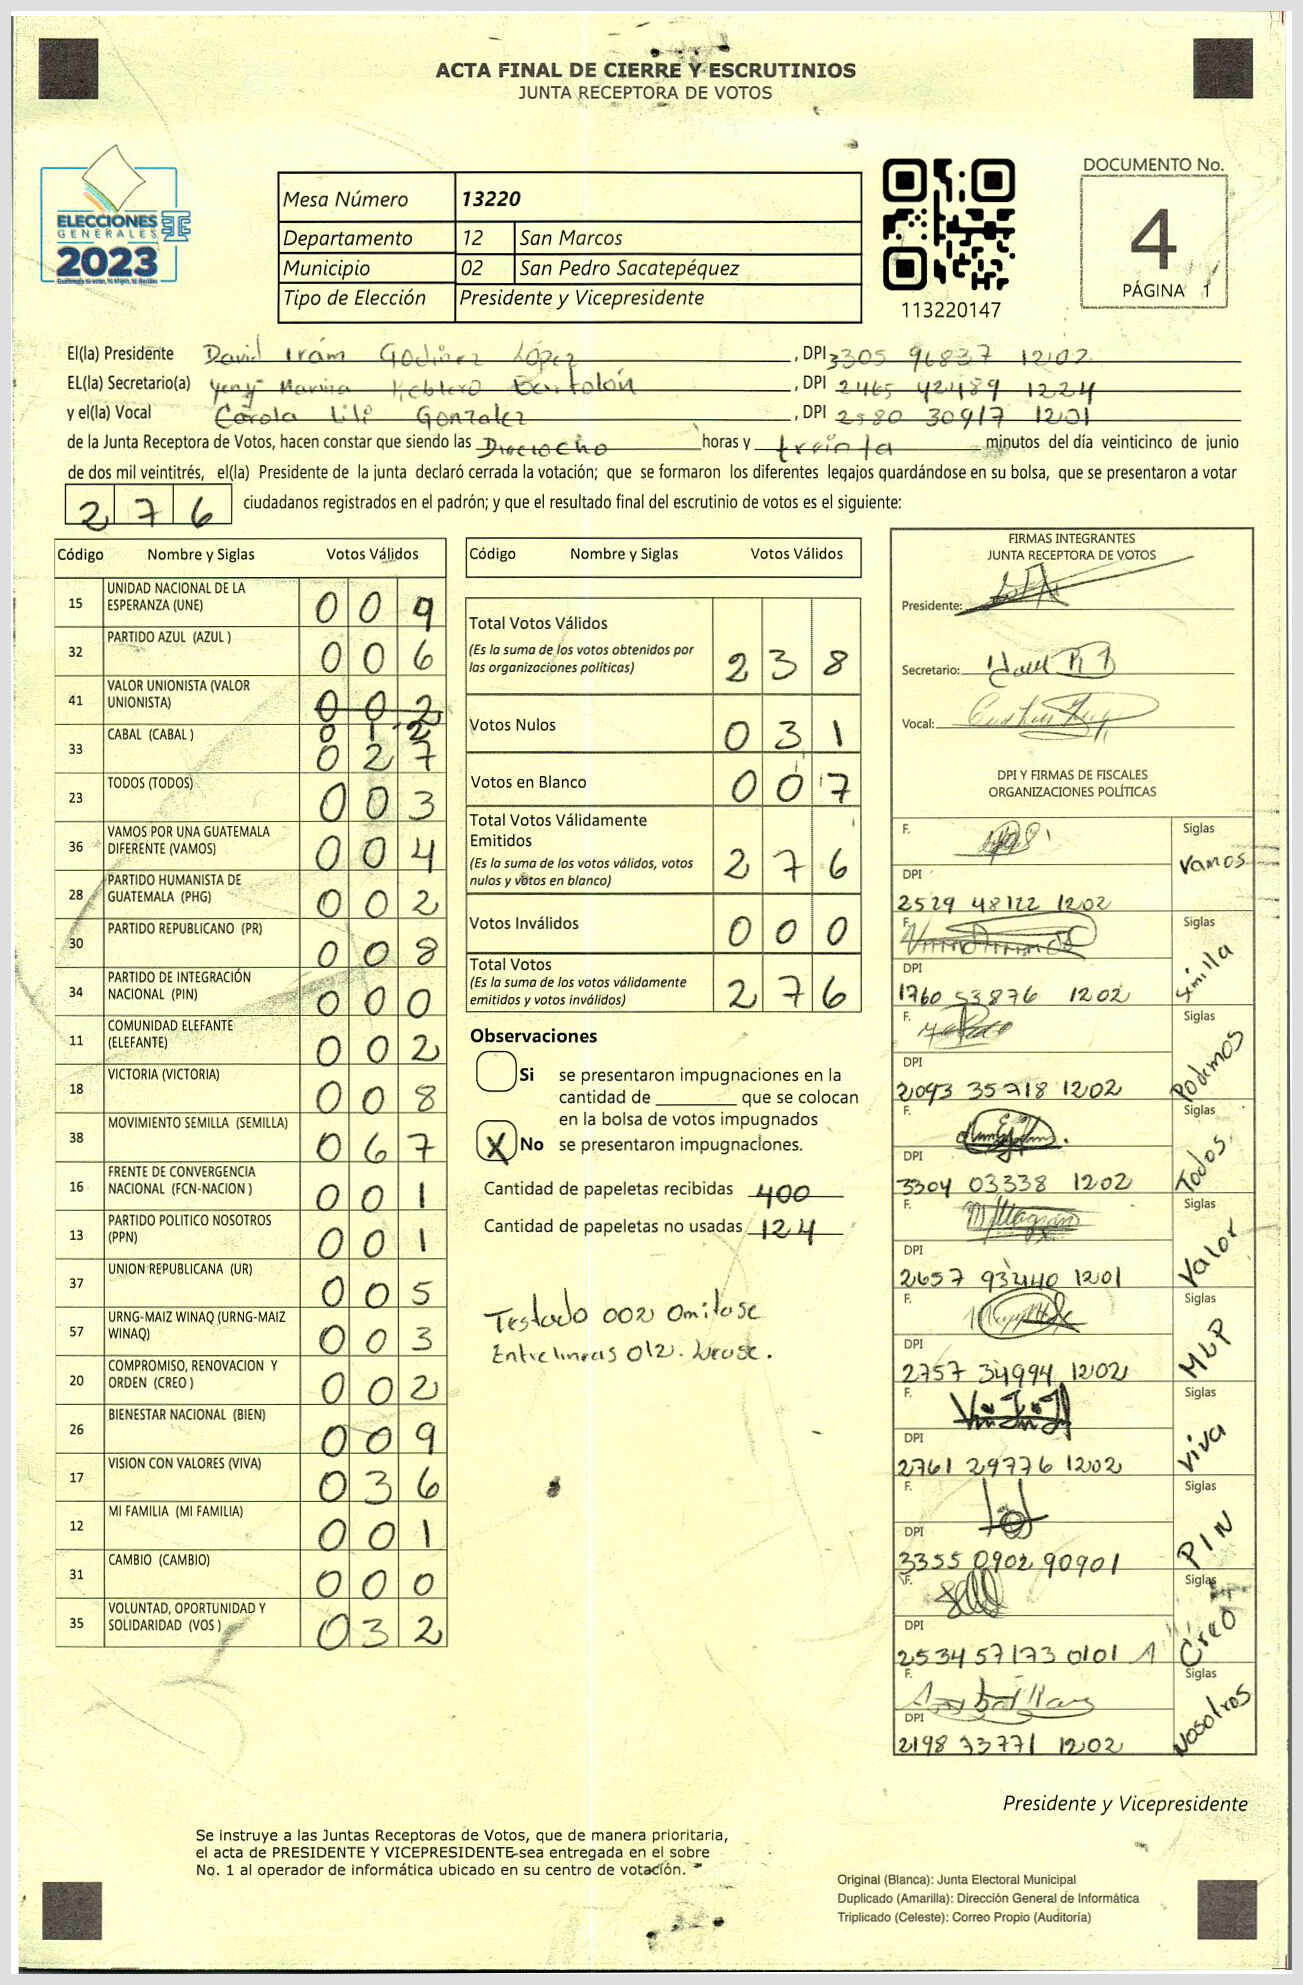 ACTA FINAL DE CIERRE Y ESCRUTINIOS
JUNTA RECEPTORA DE VOTOS
ELECCIONES
GENERALES
2023
Mesa Número 13220
Departamento 12 San Marcos
Municipio 02 San Pedro Sacatepéquez
Tipo de Elección Presidente y Vicepresidente
113220147
DOCUMENTO No.
4
PÁGINA 1
El(la) Presidente David Irám Godínez López, DPI 3305 96837 1202
EL(la) Secretario(a) Yeny Marina Bartolón, DPI 2465 42489 1224
y el(la) Vocal Carola Lili Gonzalez, DPI 2580 30917 1201
de la Junta Receptora de Votos, hacen constar que siendo las Dieciocho horas y treinta minutos del día veinticinco de junio
de dos mil veintitrés, el(la) Presidente de la junta declaró cerrada la votación; que se formaron los diferentes legajos guardándose en su bolsa, que se presentaron a votar
276 ciudadanos registrados en el padrón; y que el resultado final del escrutinio de votos es el siguiente:
Código Nombre y Siglas Votos Válidos
15 UNIDAD NACIONAL DE LA ESPERANZA (UNE) 009
32 PARTIDO AZUL (AZUL ) 006
41 VALOR UNIONISTA (VALOR UNIONISTA) 002
012
33 CABAL (CABAL ) 027
23 TODOS (TODOS) 003
36 VAMOS POR UNA GUATEMALA DIFERENTE (VAMOS) 004
28 PARTIDO HUMANISTA DE GUATEMALA (PHG) 002
30 PARTIDO REPUBLICANO (PR) 008
34 PARTIDO DE INTEGRACIÓN NACIONAL (PIN) 000
11 COMUNIDAD ELEFANTE (ELEFANTE) 002
18 VICTORIA (VICTORIA) 008
38 MOVIMIENTO SEMILLA (SEMILLA) 067
16 FRENTE DE CONVERGENCIA NACIONAL (FCN-NACION ) 001
13 PARTIDO POLITICO NOSOTROS (PPN) 001
37 UNION REPUBLICANA (UR) 005
57 URNG-MAIZ WINAQ (URNG-MAIZ WINAQ) 003
20 COMPROMISO, RENOVACION Y ORDEN (CREO ) 002
26 BIENESTAR NACIONAL (BIEN) 009
17 VISION CON VALORES (VIVA) 036
12 MI FAMILIA (MI FAMILIA) 001
31 CAMBIO (CAMBIO) 000
35 VOLUNTAD, OPORTUNIDAD Y SOLIDARIDAD (VOS ) 032
Código Nombre y Siglas Votos Válidos
Total Votos Válidos
(Es la suma de los votos obtenidos por las organizaciones políticas) 238
Votos Nulos 031
Votos en Blanco 007
Total Votos Válidamente Emitidos
(Es la suma de los votos válidos, votos nulos y votos en blanco) 276
Votos Inválidos 000
Total Votos
(Es la suma de los votos válidamente emitidos y votos inválidos) 276
Observaciones
Si se presentaron impugnaciones en la
cantidad de ________ que se colocan
en la bolsa de votos impugnados
X No se presentaron impugnaciones.
Cantidad de papeletas recibidas 400
Cantidad de papeletas no usadas 124
Testado 002 Omitase
Entrelineas 012. Lease.
FIRMAS INTEGRANTES
JUNTA RECEPTORA DE VOTOS
Presidente:
Secretario:
Vocal:
DPI Y FIRMAS DE FISCALES
ORGANIZACIONES POLÍTICAS
F. Siglas Vamos
DPI 2529 48122 1202
F. Siglas Semilla
DPI 1760 53876 1202
F. Siglas Podemos
DPI 2093 35718 1202
F. Siglas Todos
DPI 3304 03338 1202
F. Siglas Valor
DPI 2657 93440 1201
F. Siglas MLP
DPI 2757 34994 1202
F. Siglas Viva
DPI 2761 29776 1202
F. Siglas PIN
DPI 3355 0902 90901
F. Siglas Creo
DPI 2534 57173 0101
F. Siglas Nosotros
DPI 2198 73771 1202
Presidente y Vicepresidente
Se instruye a las Juntas Receptoras de Votos, que de manera prioritaria,
el acta de PRESIDENTE Y VICEPRESIDENTE sea entregada en el sobre
No. 1 al operador de informática ubicado en su centro de votación.
Original (Blanca): Junta Electoral Municipal
Duplicado (Amarilla): Dirección General de Informática
Triplicado (Celeste): Correo Propio (Auditoría)